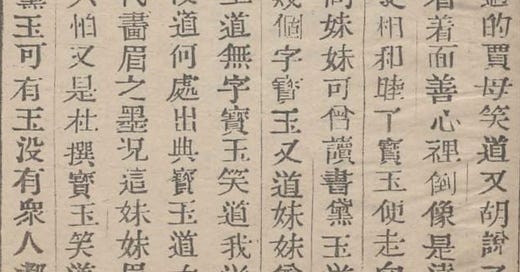 過的賈母笑道又胡說了
看着面善心裡倒像是
更相和睦了寶玉便走
問妹妹可曾讀書黛玉道
幾個字寶玉又道妹妹尊
玉道無字寶玉笑道我送
道何處出典寶玉道
代畫眉之墨况這妹妹眉
只怕又是杜撰寶玉笑道
黛玉可有玉没有衆人都